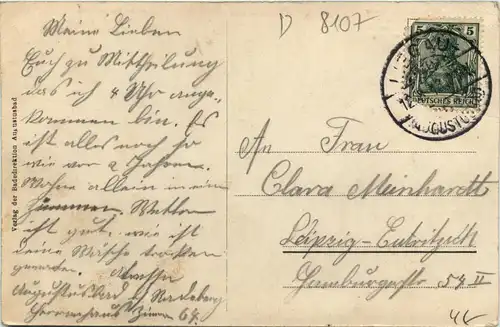 D 8107
Meine Lieben
Euch zur Mittheilung
das ich 4 Uhr ange-
kommen bin. Es
ist alles noch so
wie vor 2 Jahren.
Wohne allein in ein
Zimmer. Wetter
ist gut. wie ist
deine Wäsche trocken
geworden. Adresse
Augustusbad b/ Radeberg
Herrenhaus Zimmer 64.
Verlag der Badedirektion Augustusbad
5 5
DEUTSCHES REICH
(AUGUSTUSBAD)
An Frau
Clara Meinhardt
Leipzig-Eutritzsch
Hamburgerstr 54 II